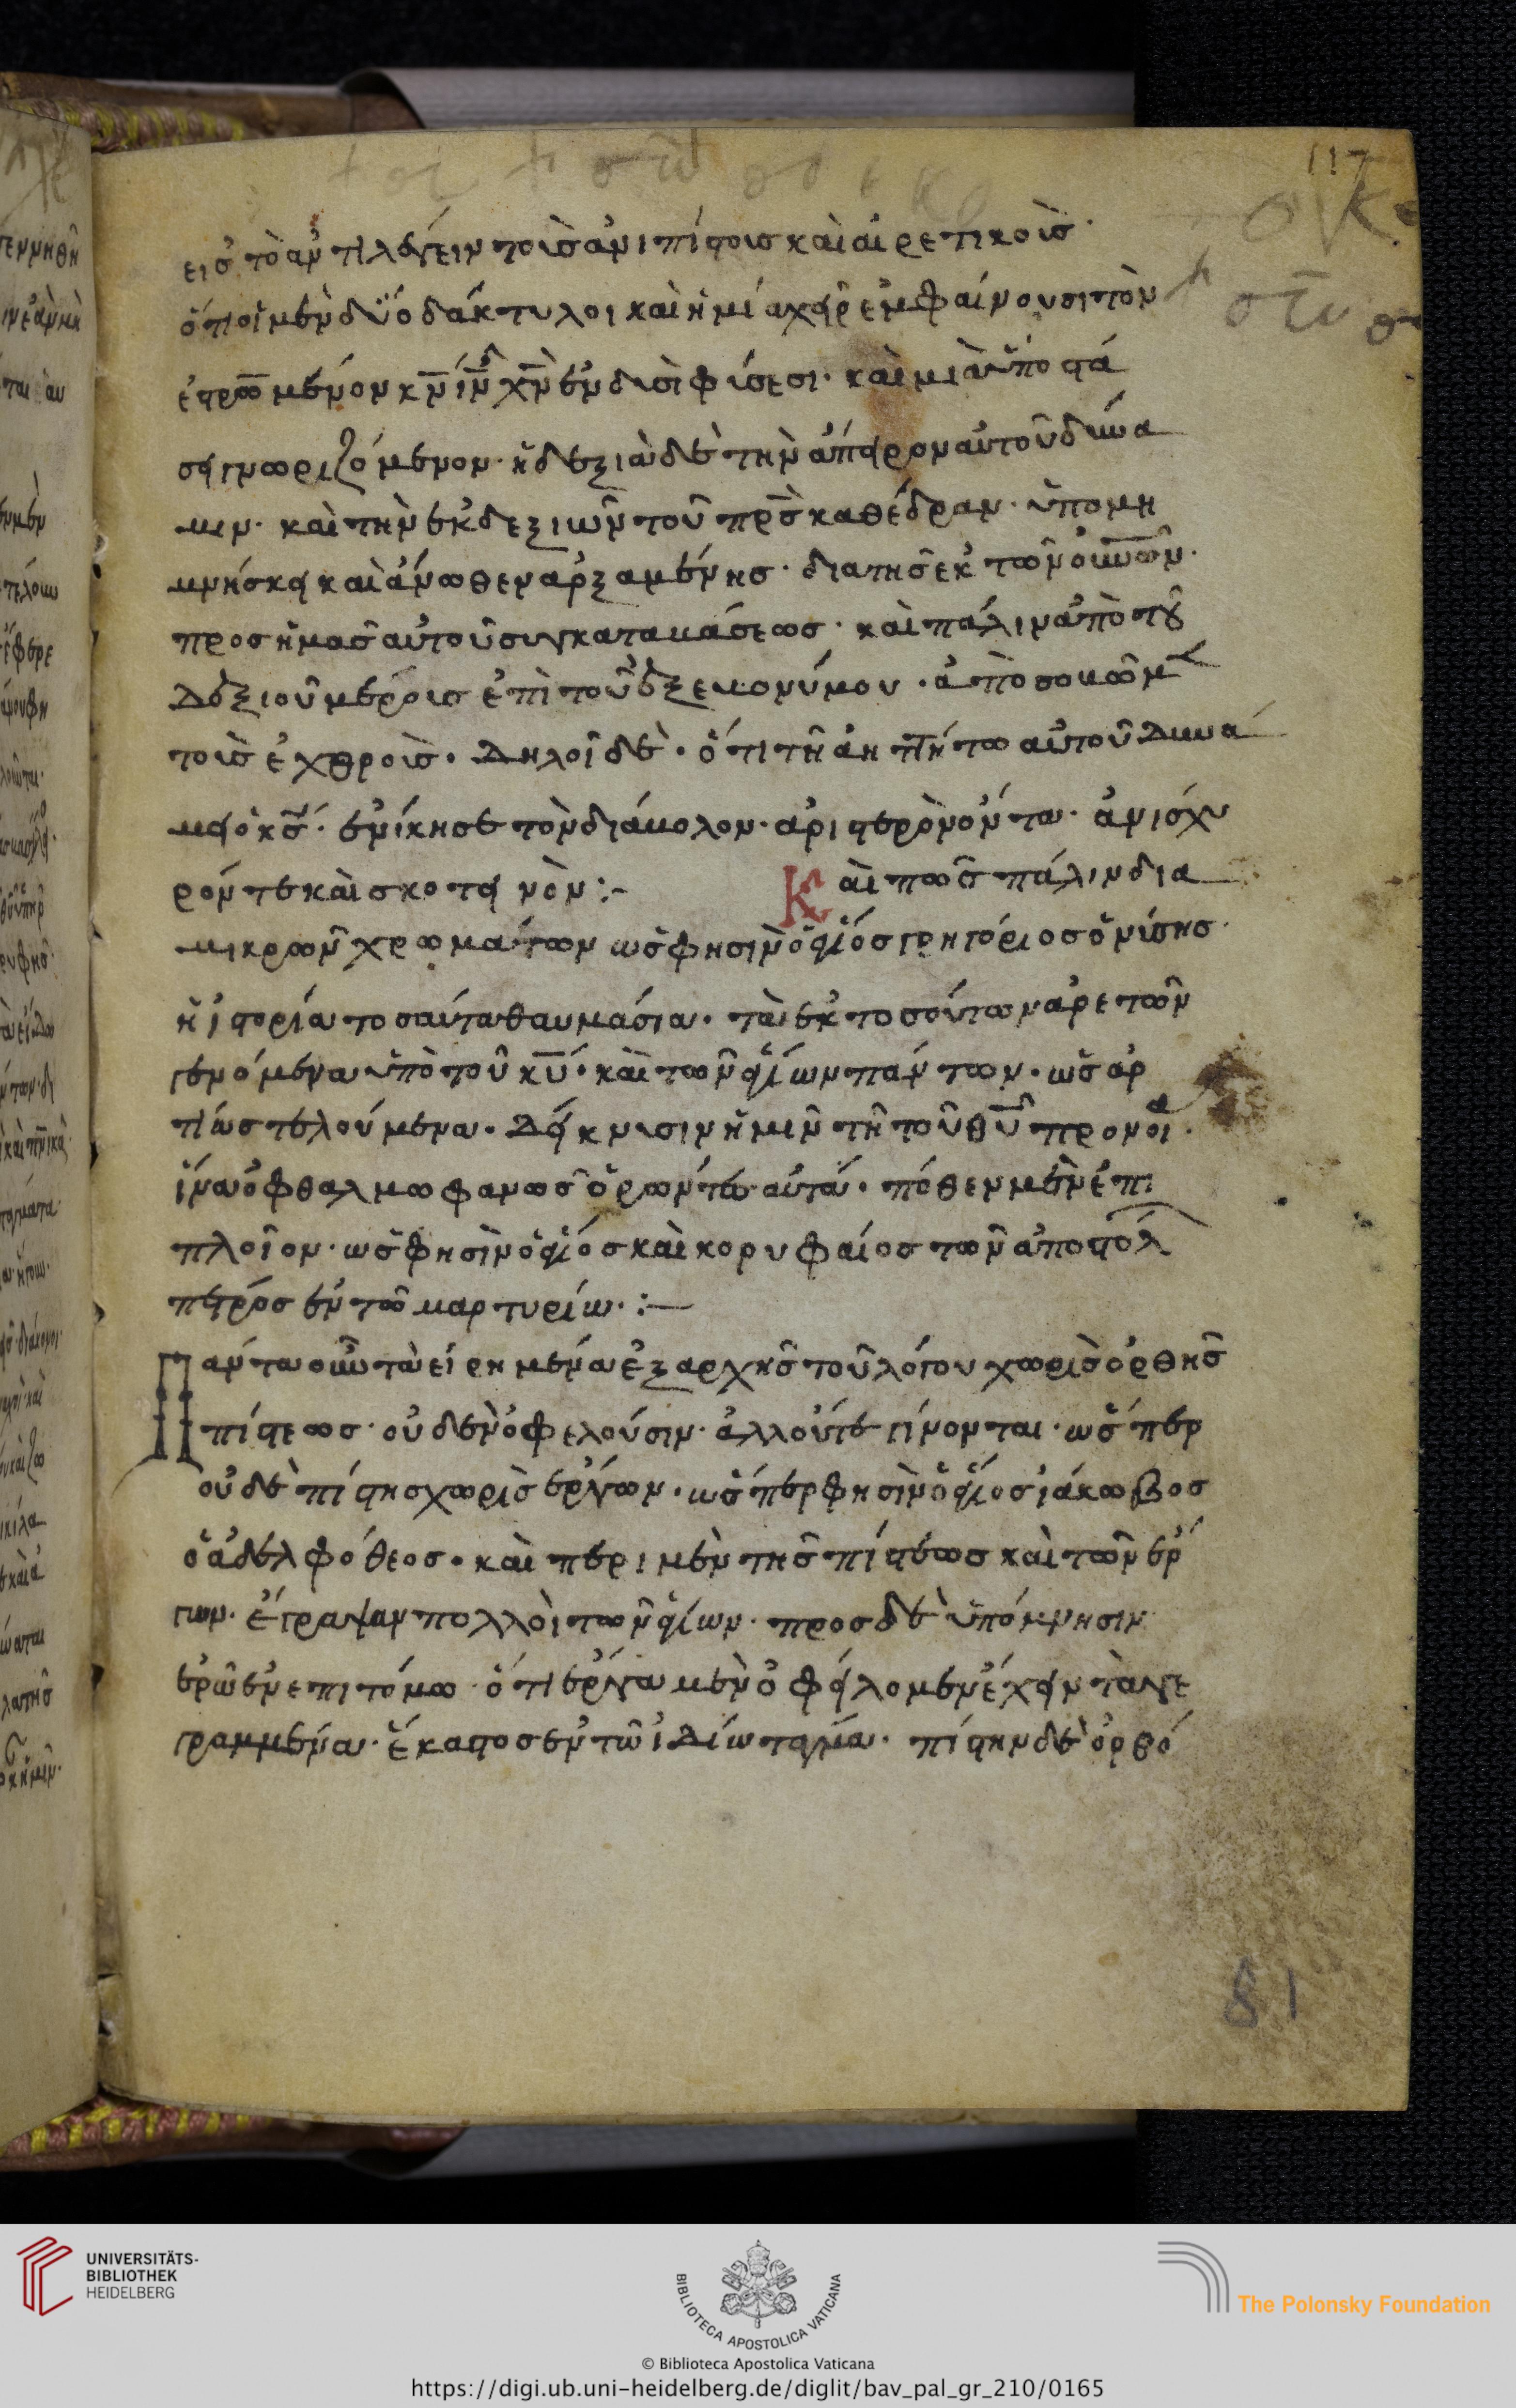 117
εἰς τὸ ἀντιλέγειν τοῖς ἀπίστοις καὶ αἱρετικοῖς·
ὅτι οἱ μὲν δύο δάκτυλοι καὶ ἡ μία χεὶρ ἐμφαίνουσι τὸν
ἐσταυρωμένον κν ἰν χν ἐν δυσὶ φύσεσι· καὶ μιᾶ ὑποστά
σει γνωριζόμενον· ἡ δεξιὰ δὲ τὴν ἄπειρον αὐτοῦ δύνα
μιν· καὶ τὴν ἐκ δεξιῶν τοῦ πρς καθέδραν· ὑπομι
μνήσκει καὶ ἄνωθεν ἀρξαμένης· διὰ τῆς ἐκ τῶν οὐνων·
προς ἡμᾶς αὐτοῦ συγκαταβάσεως· καὶ πάλιν ἀπὸ τοῦ
δεξιοῦ μέρους ἐπὶ τοῦ εὐωνύμου· ἀποσοβῶν
τοὺς ἐχθροὺς· δηλοῖ δὲ· ὅτι τῆ ἀηττήτω αὐτοῦ δυνά
μει ὁ κς· ἐνίκησε τὸν διάβολον· ἀριστερὸν ὄντα· ἀνίσχυ
ρόν τε καὶ σκοτεινὸν :-
Καὶ πῶς πάλιν δια
μικρῶν χρωμάτων ὡς φησὶν ὁ ἅγιος γρηγόριος ὁ νύσης·
ἡ ἱστορία τοσαῦτα θαυμάσια· τὰ ἐκ τοσούτων ἀρετῶν
γενόμενα ὑπὸ τοῦ κυ· καὶ τῶν ἁγίων πάντων· ὡς ἀρ
τίως τελούμενα· δείκνυσιν ἡμῖν τῆ τοῦ θυ προνοία·
ἵνα ὀφθαλμοφανῶς ὁρῶνται αὐτά· πόθεν μὲν ἐπι
πλοῖον· ὡς φησὶν ὁ ἅγιος καὶ κορυφαίος τῶν ἀποστόλ
πέτρος ἐν τῶ μαρτυρίω· :-
Πάντα οὖν τὰ εἰρημένα ἐξ ἀρχῆς τοῦ λόγου χωρὶς ὀρθῆς
πίστεως· οὐδὲν ὀφελούσιν· ἀλλ' οὔτε γίνονται· ὥσπερ
οὐδὲ πίστης χωρὶς ἔργων· ὥσπερ φησὶν ὁ ἅγιος ἰάκωβος
ὁ ἀδελφόθεος· καὶ περὶ μὲν τῆς πίστεως καὶ τῶν ἔρ
γων· ἔγραψαν πολλοὶ τῶν ἁγίων· προς δὲ ὑπόμνησιν
ἐρῶ ἐν ἐπιτόμω· ὅτι ἔργα μὲν ὀφείλομεν ἔχειν τὰ γε
γραμμένα· ἕκαστος ἐν τῶ ἰδίω τάγμα· πίστην δὲ ὀρθό
81
UNIVERSITÄTS-
BIBLIOTHEK
HEIDELBERG
BIBLIOTECA APOSTOLICA VATICANA
The Polonsky Foundation
© Biblioteca Apostolica Vaticana
https://digi.ub.uni-heidelberg.de/diglit/bav_pal_gr_210/0165